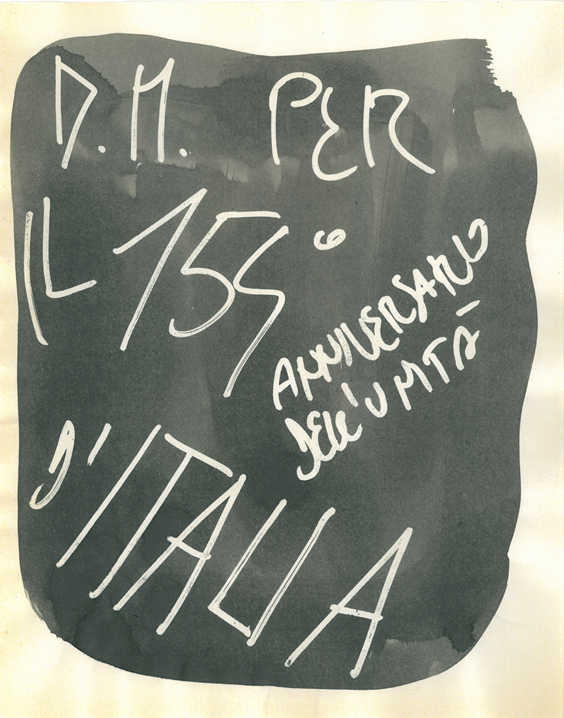 D.M. PER
IL 155°
ANNIVERSARIO
DELL'UNITÀ
D'ITALIA